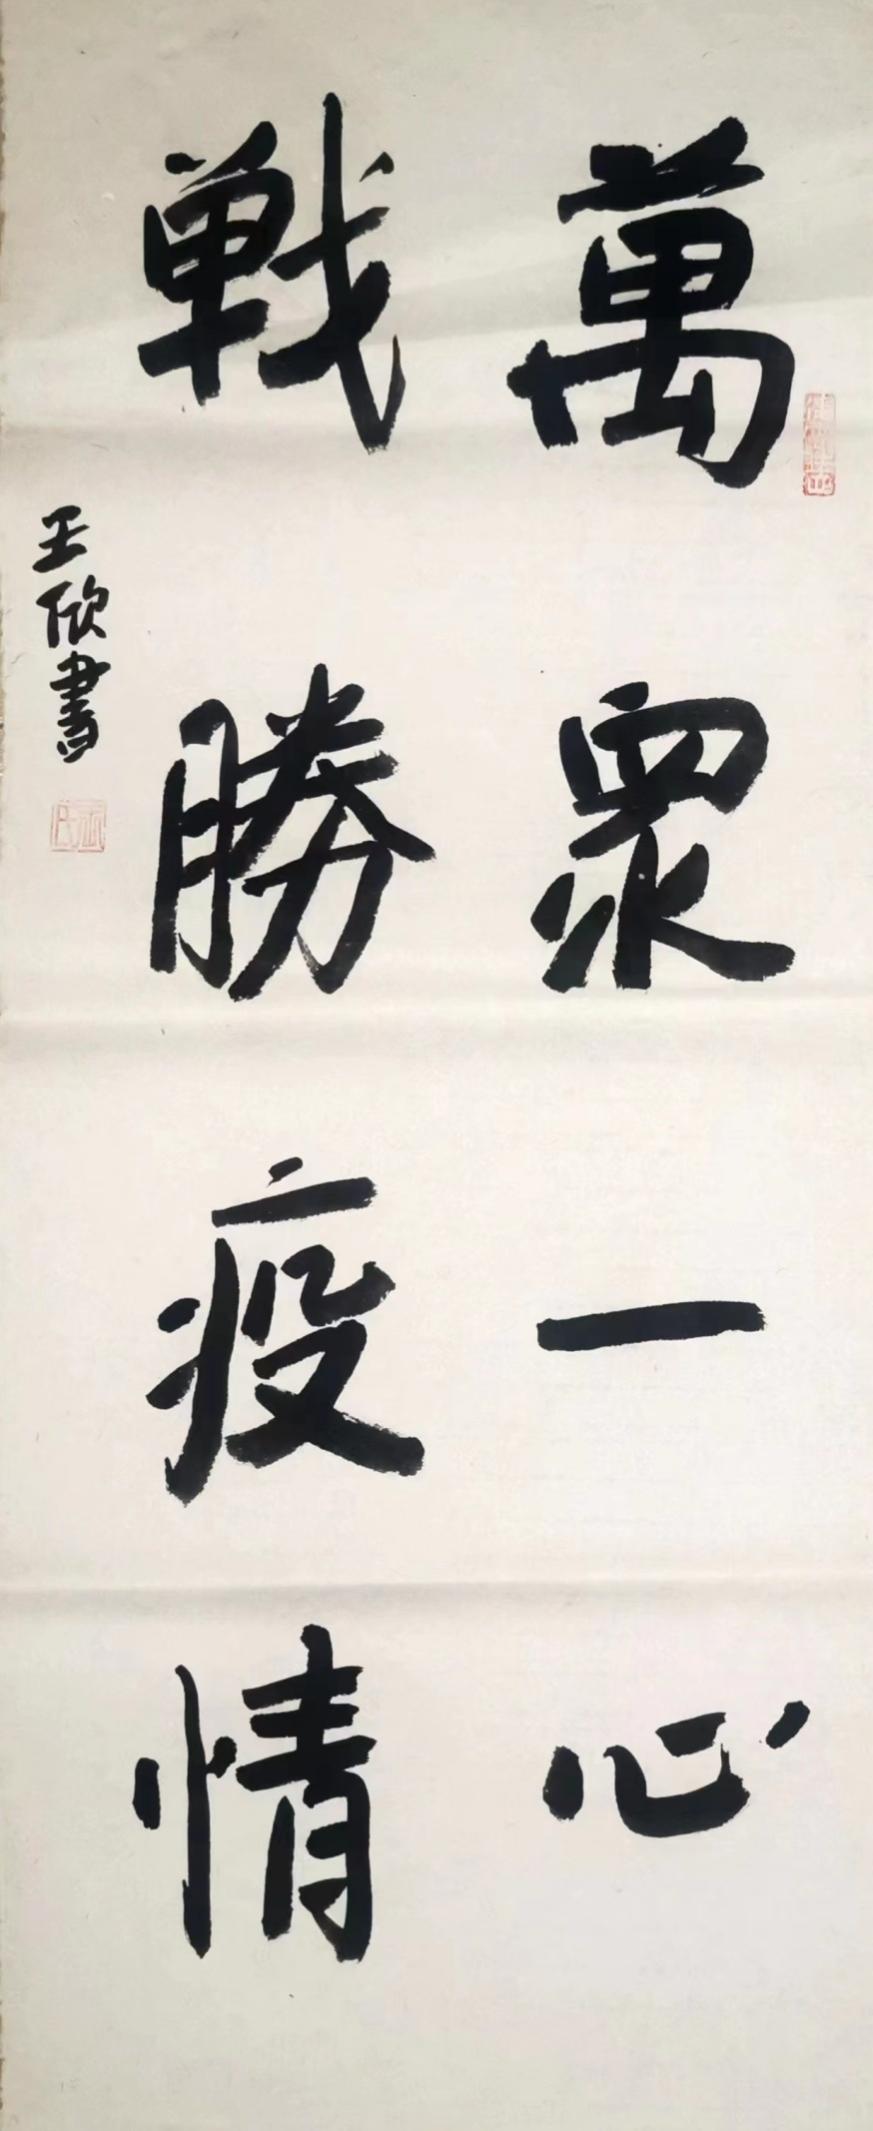 萬眾一心
戰勝疫情
王欣書